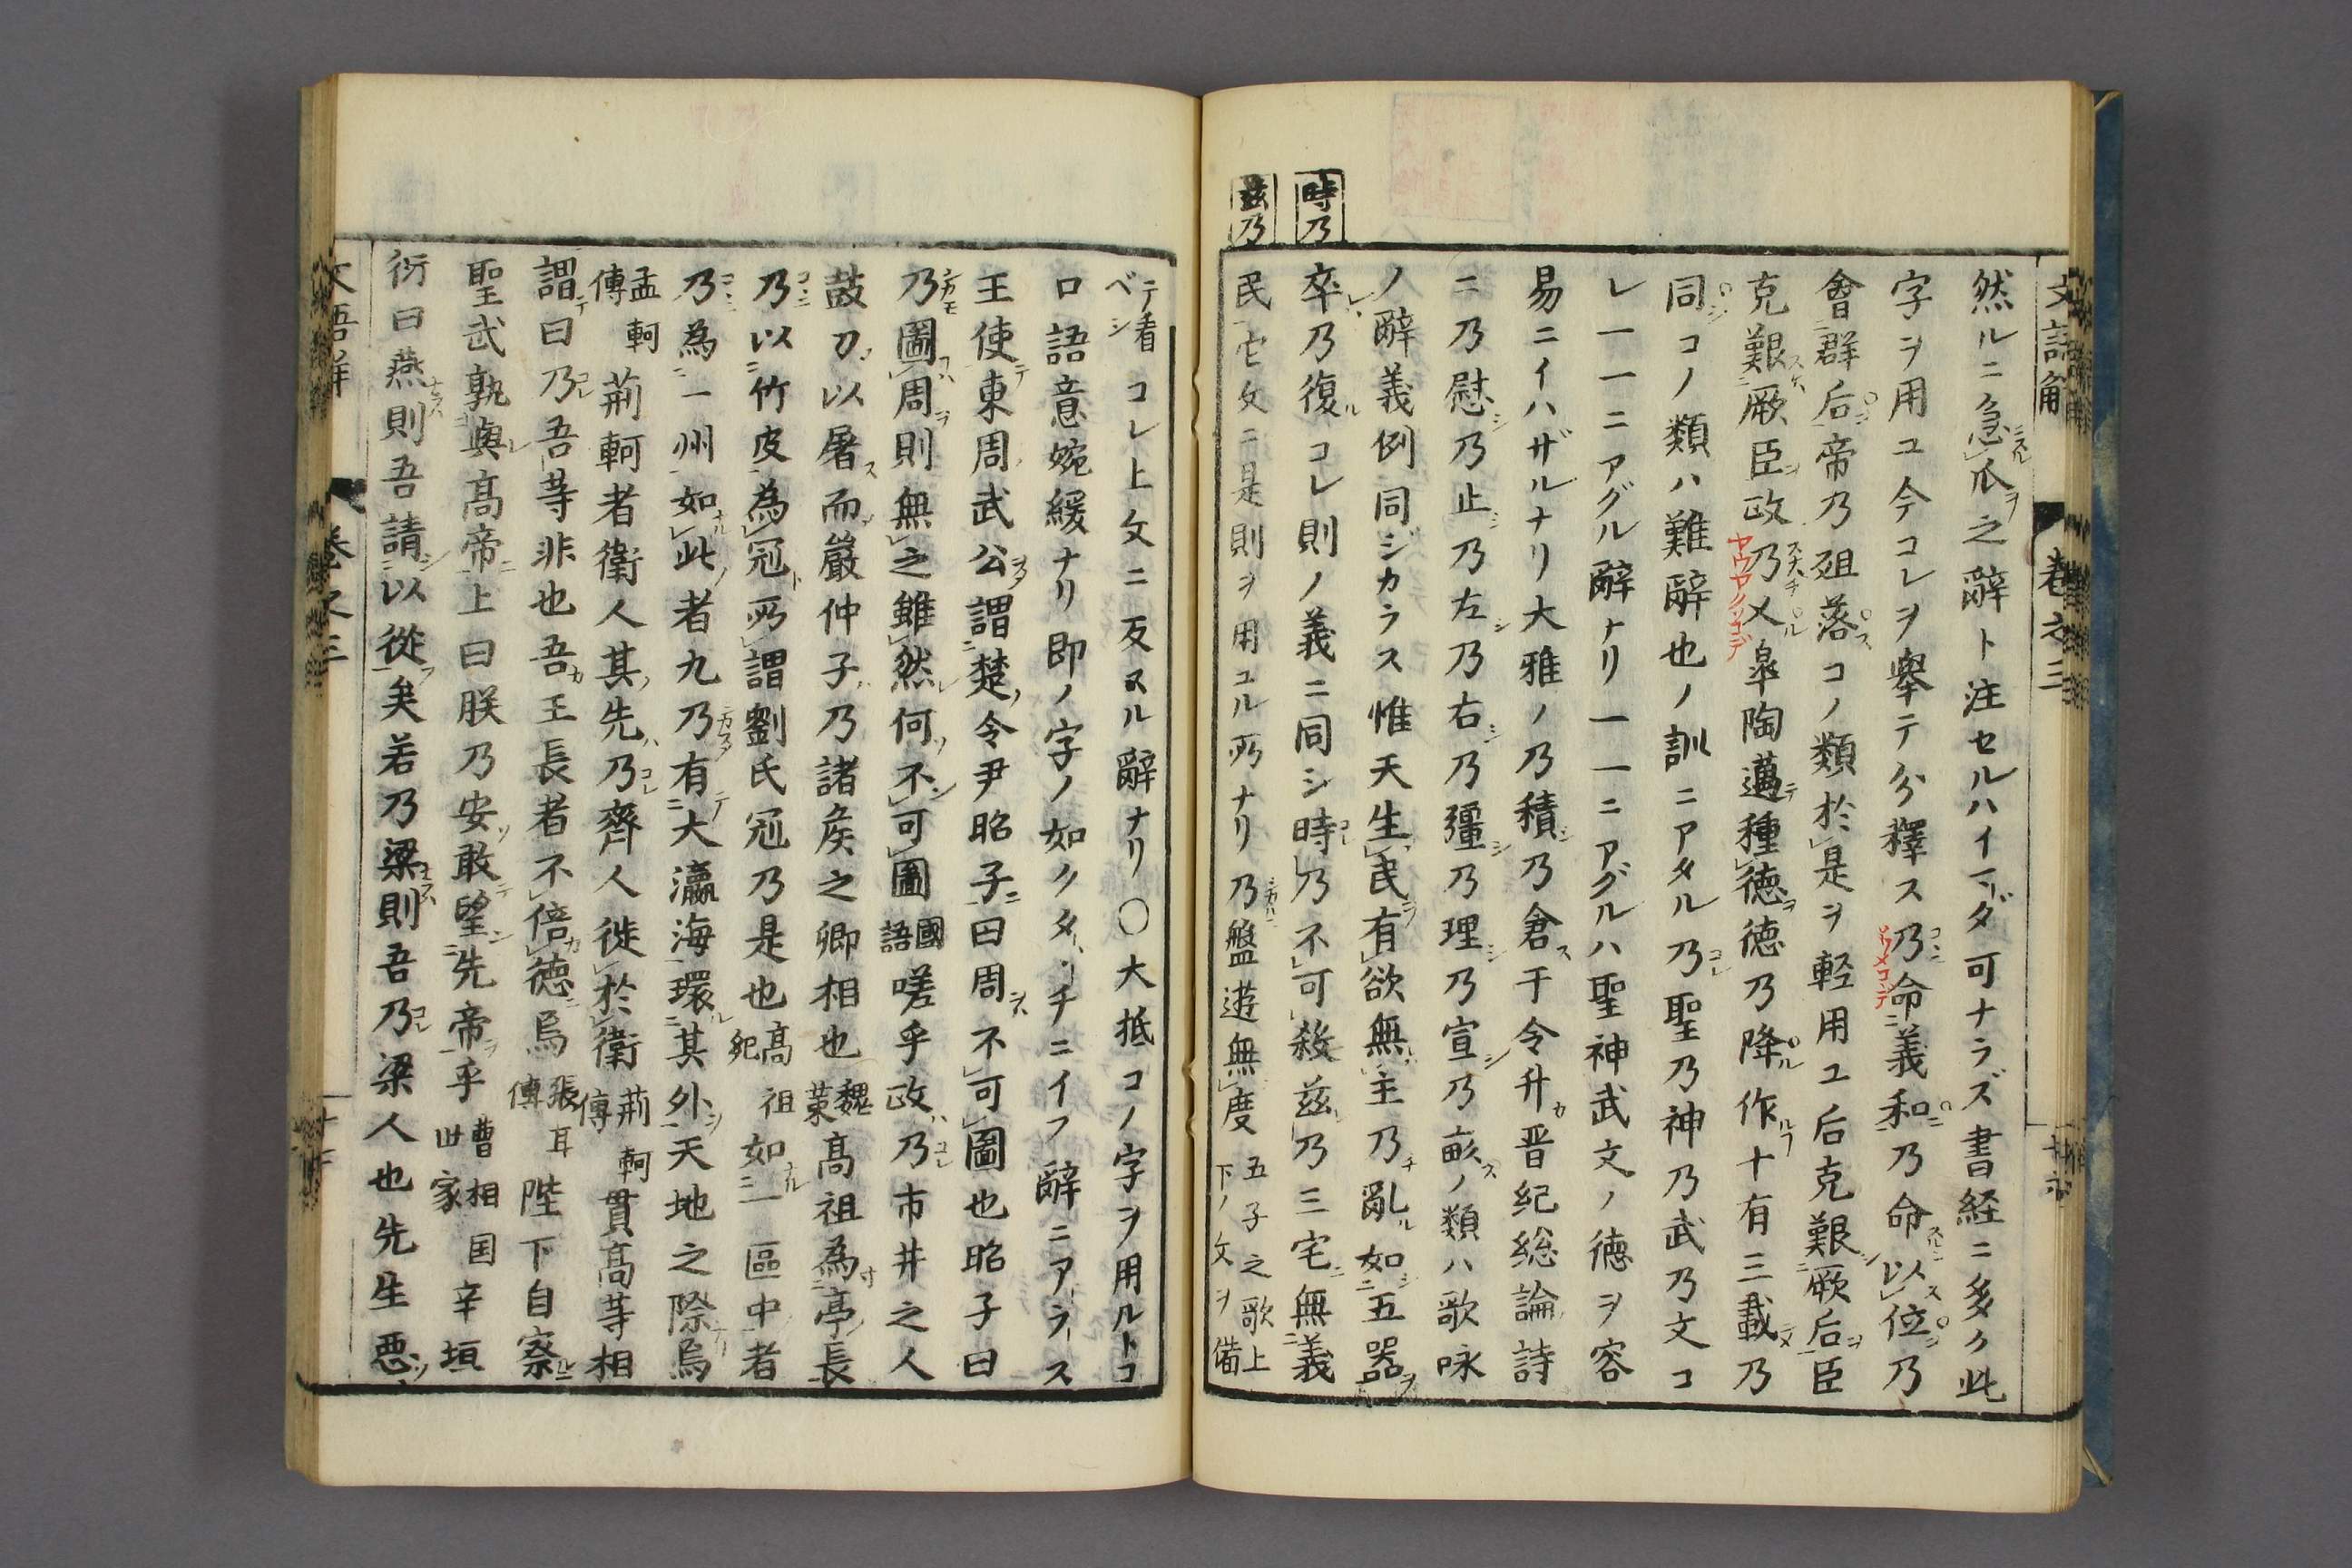 時乃
茲乃
文語解　卷之三
然ルニ急爪之辭ト注セルハイマダ可ナラズ書経ニ多ク此
字ヲ用ユ今コレヲ舉テ分釋ス乃命義和乃命以位乃
會群后帝乃殂落コノ類於是ヲ軽用ユ后克艱厥后臣
克艱厥臣政乃乂皐陶邁種徳徳乃降作十有三載乃
同コノ類ハ難辭也ノ訓ニアタル乃聖乃神乃武乃文コ
レ一一ニアグル辭ナリ一一ニアグルハ聖神武文ノ徳ヲ容
易ニイハザルナリ大雅ノ乃積乃倉于令升晋紀総論詩
ニ乃慰乃止乃左乃右乃彊乃理乃宣乃畝ノ類ハ歌咏
ノ辭義例同ジカラス惟天生民有欲無主乃亂如五器
卒乃復コレ則ノ義ニ同シ時乃不可殺茲乃三宅無義
民它文ニ是則ヲ用ユル所ナリ乃盤遊無度五子之歌上下ノ文ヲ備
テ看ベシコレ上文ニ反スル辭ナリ〇大抵コノ字ヲ用ルトコ
ロ語意婉緩ナリ即ノ字ノ如クタヾチニイフ辭ニアラス
王使東周武公謂楚令尹昭子曰周不可圖也昭子曰
乃圖周則無之雖然何不可圖國語嗟乎政乃市井之人
鼓刀以屠而嚴仲子乃諸矦之卿相也魏策高祖為亭長
乃以竹皮為冠所謂劉氏冠乃是也高祖紀如一區中者
乃為一州如此者九乃有大瀛海環其外天地之際焉
孟軻傳荊軻者衛人其先乃齊人徙於衛荊軻傳貫高等相
謂曰乃吾等非也吾王長者不倍徳焉張耳傳陛下自察
聖武孰與高帝上曰朕乃安敢望先帝乎曹相国世家辛垣
衍曰燕則吾請以從矣若乃梁則吾乃梁人也先生悪
文語解　卷之三